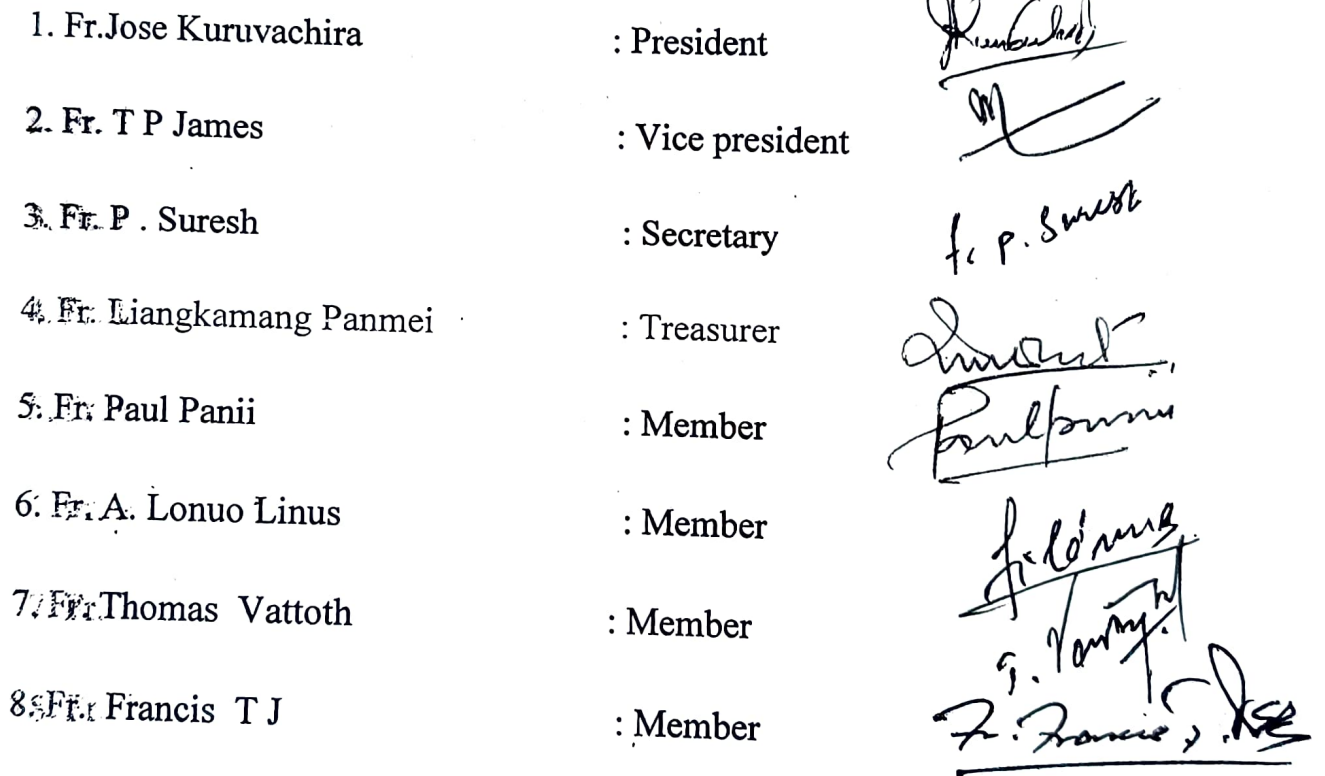 1. Fr.Jose Kuruvachira : President
2. Fr. T P James : Vice president
3. Fr. P . Suresh : Secretary
f. p. Suresh
4. Fr. Liangkamang Panmei : Treasurer
5. Fr. Paul Panii : Member
Paulpanii
6. Fr. A. Lonuo Linus : Member
7. Fr. Thomas Vattoth : Member
8. Fr. Francis T J : Member
Fr. Francis